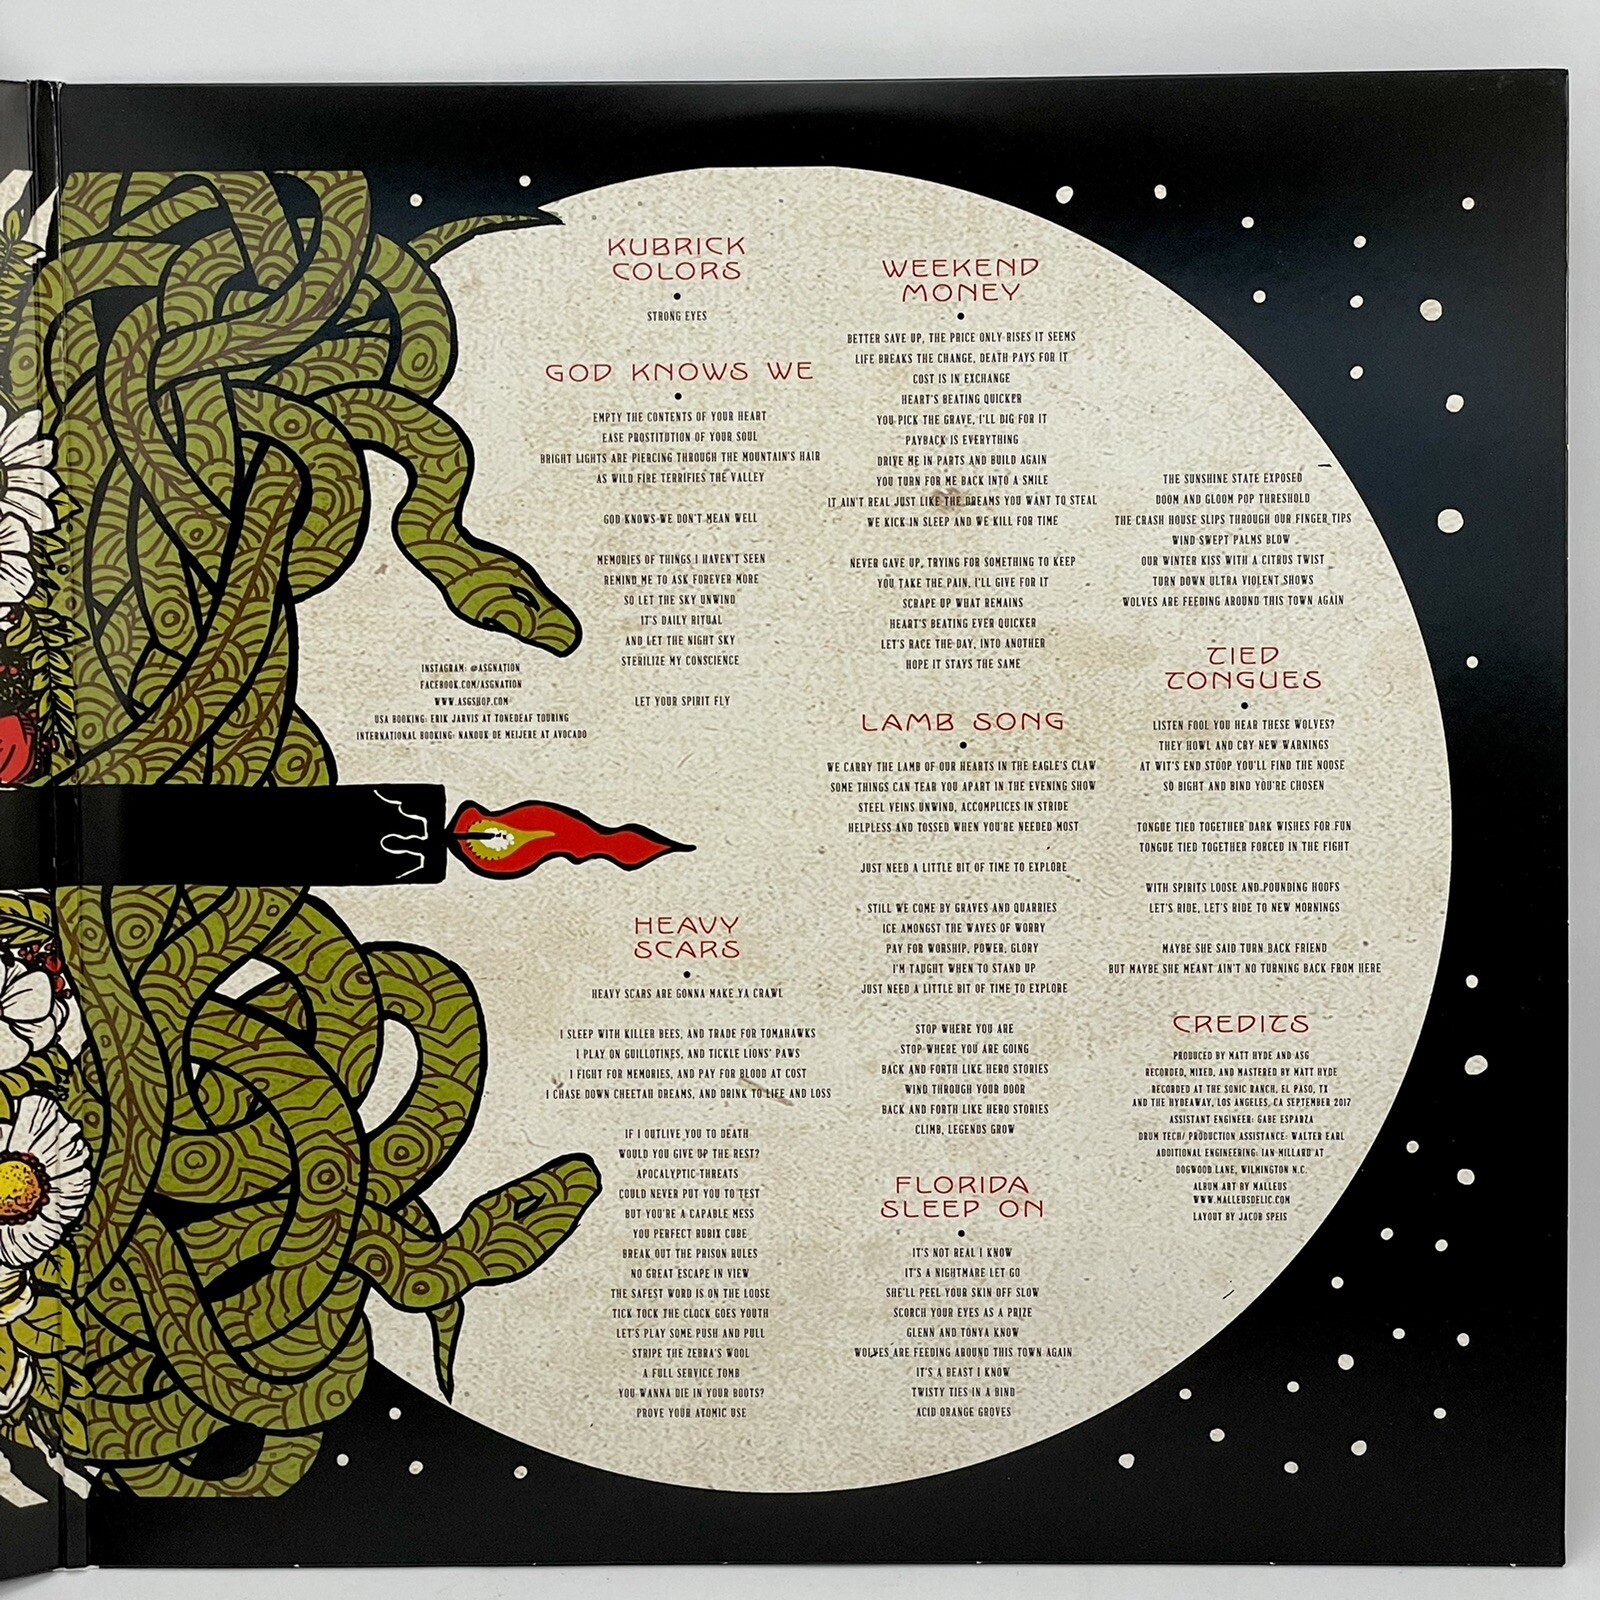 KUBRICK
COLORS
STRONG EYES
GOD KNOWS WE
EMPTY THE CONTENTS OF YOUR HEART
EASE PROSTITUTION OF YOUR SOUL
BRIGHT LIGHTS ARE PIERCING THROUGH THE MOUNTAIN'S HAIR
AS WILD FIRE TERRIFIES THE VALLEY
GOD KNOWS WE DON'T MEAN WELL
MEMORIES OF THINGS I HAVEN'T SEEN
REMIND ME TO ASK FOREVER MORE
SO LET THE SKY UNWIND
IT'S DAILY RITUAL
AND LET THE NIGHT SKY
STERILIZE MY CONSCIENCE
LET YOUR SPIRIT FLY
INSTAGRAM: @ASGNATION
FACEBOOK.COM/ASGNATION
WWW.ASGSHOP.COM
USA BOOKING: ERIK JARVIS AT TONEDEAF TOURING
INTERNATIONAL BOOKING: NANOUK DE MEIJERE AT AVOCADO
HEAVY
SCARS
HEAVY SCARS ARE GONNA MAKE YA CRAWL
I SLEEP WITH KILLER BEES, AND TRADE FOR TOMAHAWKS
I PLAY ON GUILLOTINES, AND TICKLE LIONS' PAWS
I FIGHT FOR MEMORIES, AND PAY FOR BLOOD AT COST
I CHASE DOWN CHEETAH DREAMS, AND DRINK TO LIFE AND LOSS
IF I OUTLIVE YOU TO DEATH
WOULD YOU GIVE UP THE REST?
APOCALYPTIC THREATS
COULD NEVER PUT YOU TO TEST
BUT YOU'RE A CAPABLE MESS
YOU PERFECT RUBIX CUBE
BREAK OUT THE PRISON RULES
NO GREAT ESCAPE IN VIEW
THE SAFEST WORD IS ON THE LOOSE
TICK TOCK THE CLOCK GOES YOUTH
LET'S PLAY SOME PUSH AND PULL
STRIPE THE ZEBRA'S WOOL
A FULL SERVICE TOMB
YOU WANNA DIE IN YOUR BOOTS?
PROVE YOUR ATOMIC USE
WEEKEND
MONEY
BETTER SAVE UP, THE PRICE ONLY RISES IT SEEMS
LIFE BREAKS THE CHANGE, DEATH PAYS FOR IT
COST IS IN EXCHANGE
HEART'S BEATING QUICKER
YOU PICK THE GRAVE, I'LL DIG FOR IT
PAYBACK IS EVERYTHING
DRIVE ME IN PARTS AND BUILD AGAIN
YOU TURN FOR ME BACK INTO A SMILE
IT AIN'T REAL JUST LIKE THE DREAMS YOU WANT TO STEAL
WE KICK IN SLEEP AND WE KILL FOR TIME
NEVER GAVE UP, TRYING FOR SOMETHING TO KEEP
YOU TAKE THE PAIN, I'LL GIVE FOR IT
SCRAPE UP WHAT REMAINS
HEART'S BEATING EVER QUICKER
LET'S RACE THE DAY, INTO ANOTHER
HOPE IT STAYS THE SAME
LAMB SONG
WE CARRY THE LAMB OF OUR HEARTS IN THE EAGLE'S CLAW
SOME THINGS CAN TEAR YOU APART IN THE EVENING SHOW
STEEL VEINS UNWIND, ACCOMPLICES IN STRIDE
HELPLESS AND TOSSED WHEN YOU'RE NEEDED MOST
JUST NEED A LITTLE BIT OF TIME TO EXPLORE
STILL WE COME BY GRAVES AND QUARRIES
ICE AMONGST THE WAVES OF WORRY
PAY FOR WORSHIP, POWER, GLORY
I'M TAUGHT WHEN TO STAND UP
JUST NEED A LITTLE BIT OF TIME TO EXPLORE
STOP WHERE YOU ARE
STOP WHERE YOU ARE GOING
BACK AND FORTH LIKE HERO STORIES
WIND THROUGH YOUR DOOR
BACK AND FORTH LIKE HERO STORIES
CLIMB, LEGENDS GROW
FLORIDA
SLEEP ON
IT'S NOT REAL I KNOW
IT'S A NIGHTMARE LET GO
SHE'LL PEEL YOUR SKIN OFF SLOW
SCORCH YOUR EYES AS A PRIZE
GLENN AND TONYA KNOW
WOLVES ARE FEEDING AROUND THIS TOWN AGAIN
IT'S A BEAST I KNOW
TWISTY TIES IN A BIND
ACID ORANGE GROVES
THE SUNSHINE STATE EXPOSED
DOOM AND GLOOM POP THRESHOLD
THE CRASH HOUSE SLIPS THROUGH OUR FINGER TIPS
WIND SWEPT PALMS BLOW
OUR WINTER KISS WITH A CITRUS TWIST
TURN DOWN ULTRA VIOLENT SHOWS
WOLVES ARE FEEDING AROUND THIS TOWN AGAIN
TIED
TONGUES
LISTEN FOOL YOU HEAR THESE WOLVES?
THEY HOWL AND CRY NEW WARNINGS
AT WIT'S END STOOP YOU'LL FIND THE NOOSE
SO BIGHT AND BIND YOU'RE CHOSEN
TONGUE TIED TOGETHER DARK WISHES FOR FUN
TONGUE TIED TOGETHER FORCED IN THE FIGHT
WITH SPIRITS LOOSE AND POUNDING HOOFS
LET'S RIDE, LET'S RIDE TO NEW MORNINGS
MAYBE SHE SAID TURN BACK FRIEND
BUT MAYBE SHE MEANT AIN'T NO TURNING BACK FROM HERE
CREDITS
PRODUCED BY MATT HYDE AND ASG
RECORDED, MIXED, AND MASTERED BY MATT HYDE
RECORDED AT THE SONIC RANCH, EL PASO, TX
AND THE HYDEAWAY, LOS ANGELES, CA SEPTEMBER 2017
ASSISTANT ENGINEER: GABE ESPARZA
DRUM TECH/ PRODUCTION ASSISTANCE: WALTER EARL
ADDITIONAL ENGINEERING: IAN MILLARD AT
DOGWOOD LANE, WILMINGTON N.C.
ALBUM ART BY MALLEUS
WWW.MALLEUSDELIC.COM
LAYOUT BY JACOB SPEIS